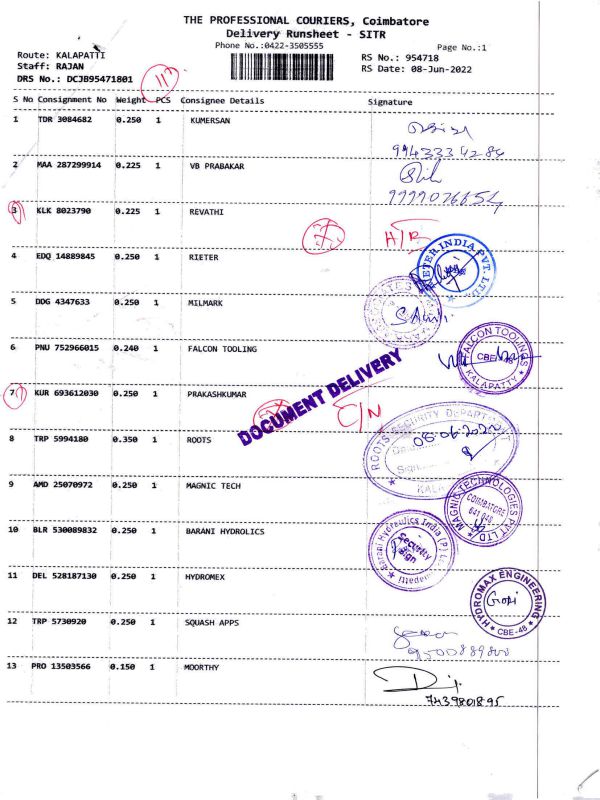 THE PROFESSIONAL COURIERS, Coimbatore
Delivery Runsheet - SITR
Phone No.:0422-3505555
Page No.:1
Route: KALAPATTI
RS No.: 954718
Staff: RAJAN
RS Date: 08-Jun-2022
DRS No.: DCJB95471801
11
S No Consignment No Weight PCS Consignee Details Signature
1 TDR 3084682 0.250 1 KUMERSAN
9943334284
2 MAA 287299914 0.225 1 VB PRABAKAR
9999076654
3 KLK 8023790 0.225 1 REVATHI
4 EDQ 14889845 0.250 1 RIETER
RIETER INDIA PVT. LTD.
5 DDG 4347633 0.250 1 MILMARK
6 PNU 752966015 0.240 1 FALCON TOOLING
FALCON TOOLINGS
CBE-48
KALAPATTY
7 KUR 693612030 0.250 1 PRAKASHKUMAR
C/N
DOCUMENT DELIVERY
8 TRP 5994180 0.350 1 ROOTS
ROOTS SECURITY DEPARTMENT
08-06-2022
9 AMD 25070972 0.250 1 MAGNIC TECH
MAGNIC TECHNOLOGIES PVT LTD
COIMBATORE
10 BLR 530089832 0.250 1 BARANI HYDROLICS
Barani Hydraulics India (P) Ltd
Security
Sign
11 DEL 528187130 0.250 1 HYDROMEX
HYDROMAX ENGINEERING
Gopi
CBE-48
12 TRP 5730920 0.250 1 SQUASH APPS
13 PRO 13503566 0.150 1 MOORTHY
7439801895